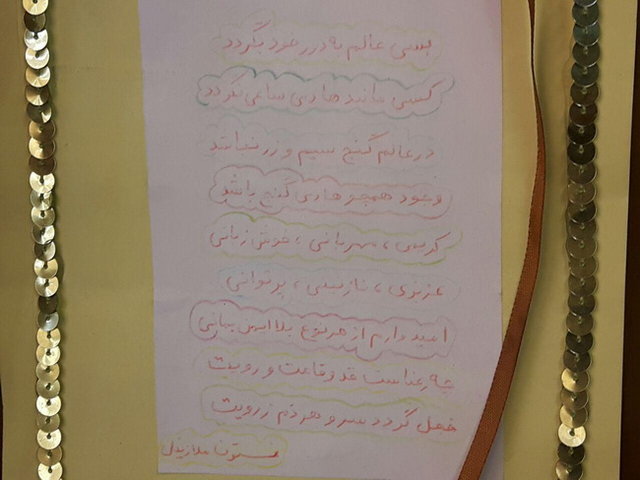 بسی عالم به دور خود بگردد
کسی مانند هادی ساعی نگردد
در عالم گنج سیم و زر نباشد
وجود همچو هادی گنج باشد
کریمی ، مهربانی ، خوش زبانی
عزیزی ، نازنینی ، پرتوانی
امیدوارم از هر نوع بلا ایمن بمانی
چه رعناست قد و قامت و رویت
خجل گردد سر و هر دم ز رویت